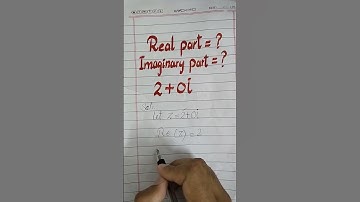 Real part = ?
Imaginary part = ?
2 + 0i
Sol:
Let Z = 2+0i
Re(Z) = 2